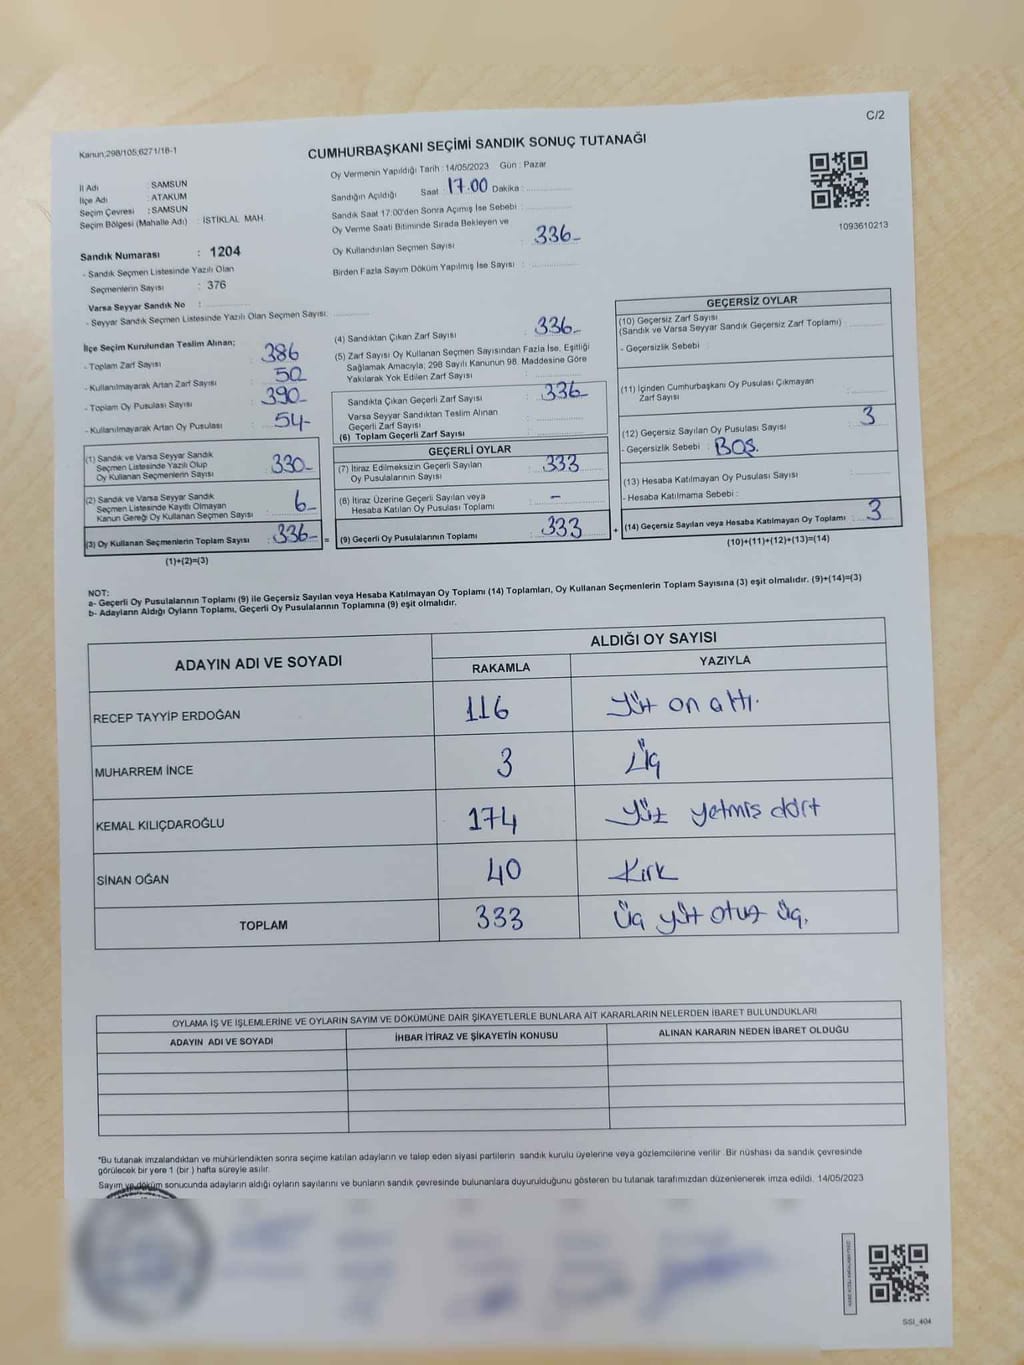 C/2
Kanun:298/105;6271/18-1
CUMHURBAŞKANI SEÇİMİ SANDIK SONUÇ TUTANAĞI
İl Adı : SAMSUN
İlçe Adı : ATAKUM
Seçim Çevresi : SAMSUN
Seçim Bölgesi (Mahalle Adı) : İSTİKLAL MAH.
Sandık Numarası : 1204
- Sandık Seçmen Listesinde Yazılı Olan
Seçmenlerin Sayısı : 376
Varsa Seyyar Sandık No :
- Seyyar Sandık Seçmen Listesinde Yazılı Olan Seçmen Sayısı:
Oy Vermenin Yapıldığı Tarih : 14/05/2023 Gün : Pazar
Sandığın Açıldığı Saat : 17.00 Dakika :
Sandık Saat 17:00'den Sonra Açımış İse Sebebi :
Oy Verme Saati Bitiminde Sırada Bekleyen ve
Oy Kullandırılan Seçmen Sayısı : 336-
Birden Fazla Sayım Döküm Yapılmış İse Sayısı :
1093610213
İlçe Seçim Kurulundan Teslim Alınan;
- Toplam Zarf Sayısı : 386
- Kullanılmayarak Artan Zarf Sayısı : 50
- Toplam Oy Pusulası Sayısı : 390-
- Kullanılmayarak Artan Oy Pusulası : 54-
(1) Sandık ve Varsa Seyyar Sandık
Seçmen Listesinde Yazılı Olup
Oy Kullanan Seçmenlerin Sayısı : 330-
(2) Sandık ve Varsa Seyyar Sandık
Seçmen Listesinde Kayıtlı Olmayan
Kanun Gereği Oy Kullanan Seçmen Sayısı : 6-
(3) Oy Kullanan Seçmenlerin Toplam Sayısı : 336- =
(1)+(2)=(3)
(4) Sandıktan Çıkan Zarf Sayısı : 336-
(5) Zarf Sayısı Oy Kullanan Seçmen Sayısından Fazla İse, Eşitliği
Sağlamak Amacıyla; 298 Sayılı Kanunun 98. Maddesine Göre
Yakılarak Yok Edilen Zarf Sayısı :
Sandıkta Çıkan Geçerli Zarf Sayısı : 336-
Varsa Seyyar Sandıktan Teslim Alınan
Geçerli Zarf Sayısı :
(6) Toplam Geçerli Zarf Sayısı :
GEÇERLİ OYLAR
(7) İtiraz Edilmeksizin Geçerli Sayılan
Oy Pusulasının Sayısı : 333
(8) İtiraz Üzerine Geçerli Sayılan veya
Hesaba Katılan Oy Pusulası Toplamı : -
(9) Geçerli Oy Pusulalarının Toplamı : 333 +
GEÇERSİZ OYLAR
(10) Geçersiz Zarf Sayısı
(Sandık ve Varsa Seyyar Sandık Geçersiz Zarf Toplamı) :
- Geçersizlik Sebebi :
(11) İçinden Cumhurbaşkanı Oy Pusulası Çıkmayan
Zarf Sayısı :
(12) Geçersiz Sayılan Oy Pusulası Sayısı : 3
- Geçersizlik Sebebi : BOŞ.
(13) Hesaba Katılmayan Oy Pusulası Sayısı :
- Hesaba Katılmama Sebebi :
(14) Geçersiz Sayılan veya Hesaba Katılmayan Oy Toplamı : 3
(10)+(11)+(12)+(13)=(14)
NOT:
a- Geçerli Oy Pusulalarının Toplamı (9) ile Geçersiz Sayılan veya Hesaba Katılmayan Oy Toplamı (14) Toplamları, Oy Kullanan Seçmenlerin Toplam Sayısına (3) eşit olmalıdır. (9)+(14)=(3)
b- Adayların Aldığı Oyların Toplamı, Geçerli Oy Pusulalarının Toplamına (9) eşit olmalıdır.
ADAYIN ADI VE SOYADI ALDIĞI OY SAYISI
RAKAMLA YAZIYLA
RECEP TAYYİP ERDOĞAN 116 Yüz on altı.
MUHARREM İNCE 3 Üç
KEMAL KILIÇDAROĞLU 174 Yüz yetmiş dört
SİNAN OĞAN 40 Kırk
TOPLAM 333 Üç yüz otuz üç.
OYLAMA İŞ VE İŞLEMLERİNE VE OYLARIN SAYIM VE DÖKÜMÜNE DAİR ŞİKAYETLERLE BUNLARA AİT KARARLARIN NELERDEN İBARET BULUNDUKLARI
ADAYIN ADI VE SOYADI İHBAR İTİRAZ VE ŞİKAYETİN KONUSU ALINAN KARARIN NEDEN İBARET OLDUĞU
*Bu tutanak imzalandıktan ve mühürlendikten sonra seçime katılan adayların ve talep eden siyasi partilerin sandık kurulu üyelerine veya gözlemcilerine verilir. Bir nüshası da sandık çevresinde
görülecek bir yere 1 (bir ) hafta süreyle asılır.
Sayım ve döküm sonucunda adayların aldığı oyların sayılarını ve bunların sandık çevresinde bulunanlara duyurulduğunu gösteren bu tutanak tarafımızdan düzenlenerek imza edildi. 14/05/2023
SSI_404